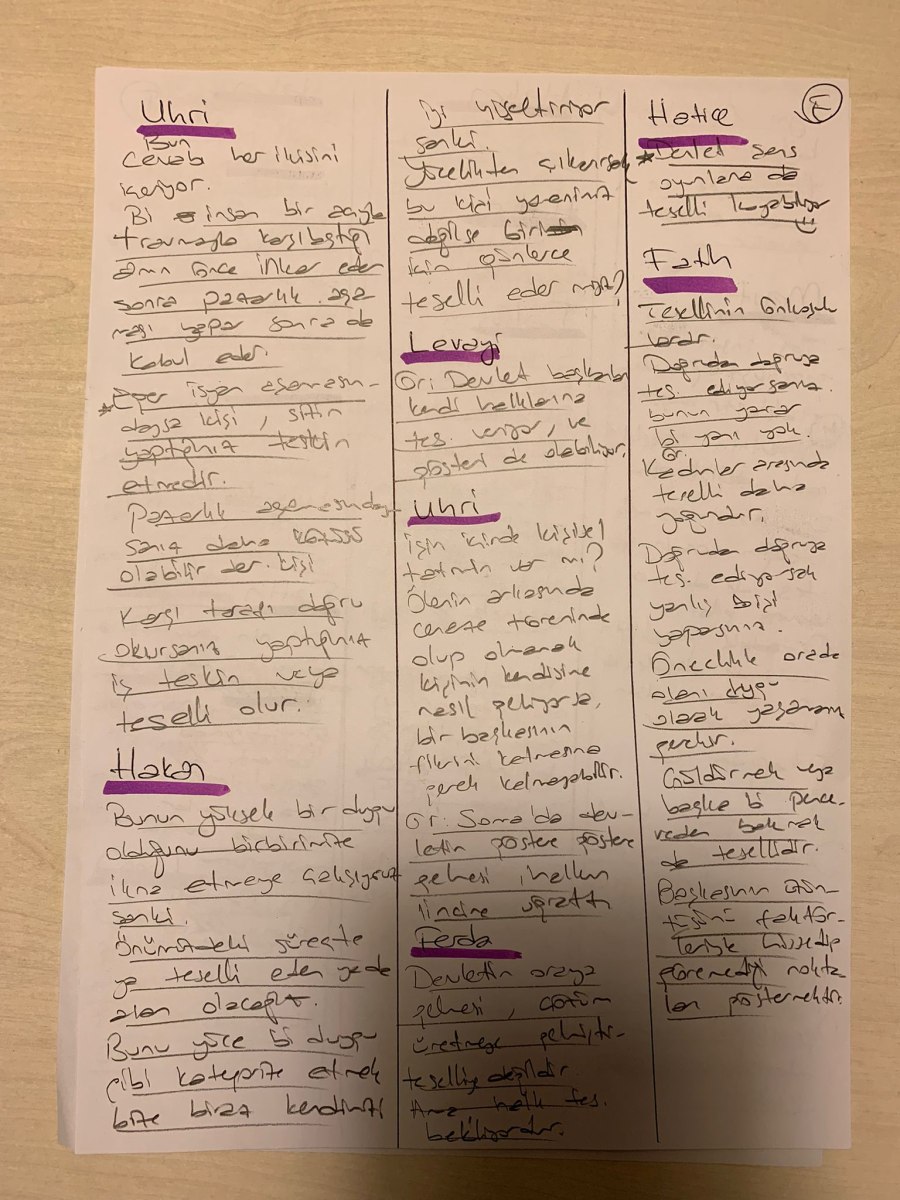 Uhri
Bun
Cevab her ikisini
içeriyor.
Bi insan bir acıyla
travmayla karşılaştığı
önce inkar eder
sonra pazarlık aşa
ması yapar sonra da
kabul eder.
*Eğer isyan aşamasın-
daysa kişi, sizin
yaptığınız teskin
etmedir.
Pazarlık aşamasınday-
sanız daha kötüsü
olabilir der. kişi
Karşı tarafı doğru
okursanız yaptığınız
iş teskin veya
teselli olur.
Hakan
Bunun yüksek bir duygu
olduğunu birbirimize
ikna etmeye çalışıyoruz
sanki.
Önümüzdeki süreçte
ya teselli eden ya da
alan olacağız.
Bunu yüce bi duygu
gibi kategorize etmek
bize biraz kendimizi
iyi hissettiriyor
sanki.
Yücelikten çıkarırsak
bu kişi yareniniz
değilse biri
için günlerce
teselli eder miyiz?
Levayi
Ör: Devlet başkanları
kendi halklarına
tes. veriyor, ve
gösteri de olabiliyor.
Uhri
İşin içinde kişisel
tatmin var mı?
Ölenin arkasında
cenaze töreninde
olup olmamak
kişinin kendisine
nasıl geliyorsa,
bir başkasının
fikrini katmasına
gerek kalmayabilir.
Ör: Soma'da dev-
letin göstere göstere
gelmesi, halkın
lincine uğrattı
Ferda
Devletin oraya
gelmesi, çözüm
üretmeye gelmiştir-
teselliye değildir.
Ama halk tes.
bekliyordur.
E
Hatice
*Devlet şans
oyunlarına da
teselli koyabiliyor
Fatih
Tesellinin önkoşulu
vardır.
Doğrudan doğruya
tes. ediyorsanız
bunun yarar
bi yanı yok.
Ör:
Kadınlar arasında
teselli daha
yaygındır.
Doğrudan doğruya
tes. ediyorsak
yanlış bilgi
yaparsınız.
Öncelikle orada
olanı duygu
olarak yaşamanız
gerekir.
Güldürmek veya
başka bi pence-
reden bakmak
da tesellidir.
Başkasının
faktör-
leriyle hissedip
göremediği nokta-
ları göstermektir.